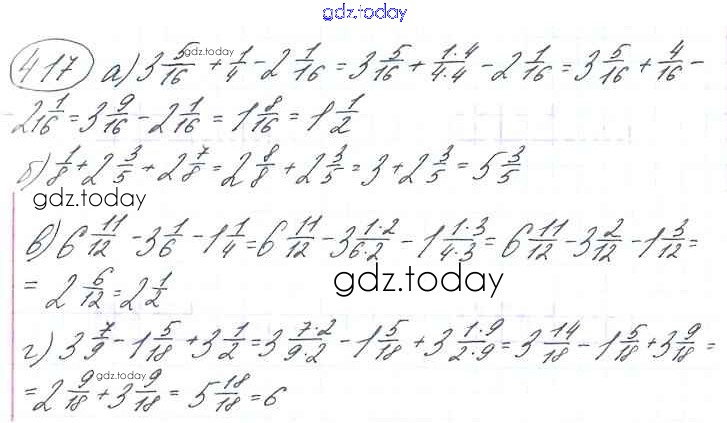 gdz.today
417 а) 3 5/16 + 1/4 - 2 1/16 = 3 5/16 + 1·4/4·4 - 2 1/16 = 3 5/16 + 4/16 -
gdz.today
2 1/16 = 3 9/16 - 2 1/16 = 1 8/16 = 1 1/2
б) 1/8 + 2 3/5 + 2 7/8 = 2 8/8 + 2 3/5 = 3 + 2 3/5 = 5 3/5
gdz.today
в) 6 11/12 - 3 1/6 - 1 1/4 = 6 11/12 - 3 1·2/6·2 - 1 1·3/4·3 = 6 11/12 - 3 2/12 - 1 3/12 =
= 2 6/12 = 2 1/2
gdz.today
г) 3 7/9 - 1 5/18 + 3 1/2 = 3 7·2/9·2 - 1 5/18 + 3 1·9/2·9 = 3 14/18 - 1 5/18 + 3 9/18 =
gdz.today
= 2 9/18 + 3 9/18 = 5 18/18 = 6